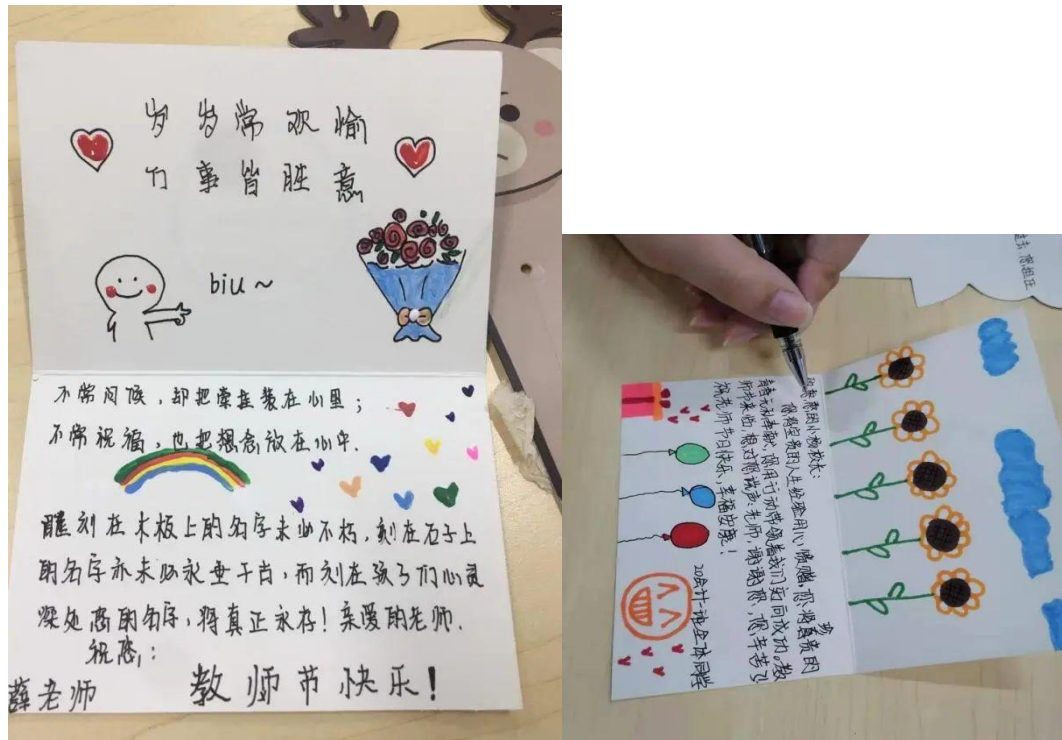 岁岁常欢愉
万事皆胜意
biu~
不常问候，却把牵挂装在心里；
不常祝福，也把想念放在心中.
雕刻在木板上的名字未必不朽，刻在石子上
的名字亦未必永垂千古，而刻在孩子们心灵
深处您的名字，将真正永存！亲爱的老师.
祝您：
薛老师
教师节快乐！
的小校长：
您将宝贵的人生经验用心馈赠，您将珍贵的
青春无私奉献，您用行动带领着我们迈向成功。教
师节来临，想对您说声：老师，谢谢您，您辛苦了
祝老师节日快乐，幸福安康！
20会计一班全体同学